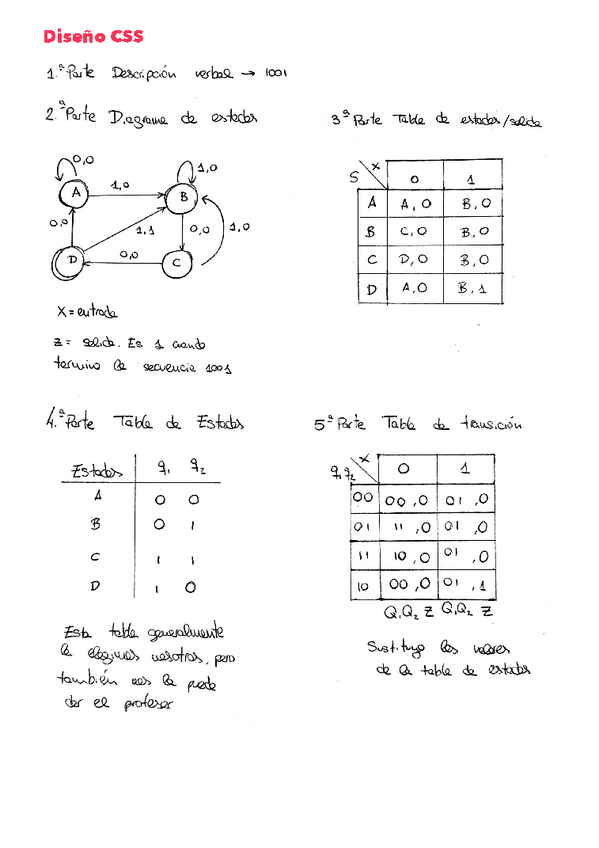 Diseño CSS
1.ª Parte Descripción verbal → 1001
2.ª Parte Diagrama de estados
0,0
A
1,0
B
1,0
0,0
1,1
0,0
1,0
D
0,0
C
X = entrada
Z = salida. Es 1 cuando
termino la secuencia 1001
3ª Parte Tabla de estados/salida
S X 0 1
A A,0 B,0
B C,0 B,0
C D,0 B,0
D A,0 B,1
4.ª Parte Tabla de Estados
Estados q1 q2
A 0 0
B 0 1
C 1 1
D 1 0
Esta tabla generalmente
la elegimos nosotros, pero
también nos la puede
dar el profesor
5ª Parte Tabla de transición
q1q2 X 0 1
00 00,0 01,0
01 11,0 01,0
11 10,0 01,0
10 00,0 01,1
Q1Q2 Z Q1Q2 Z
Sustituyo los valores
de la tabla de estados